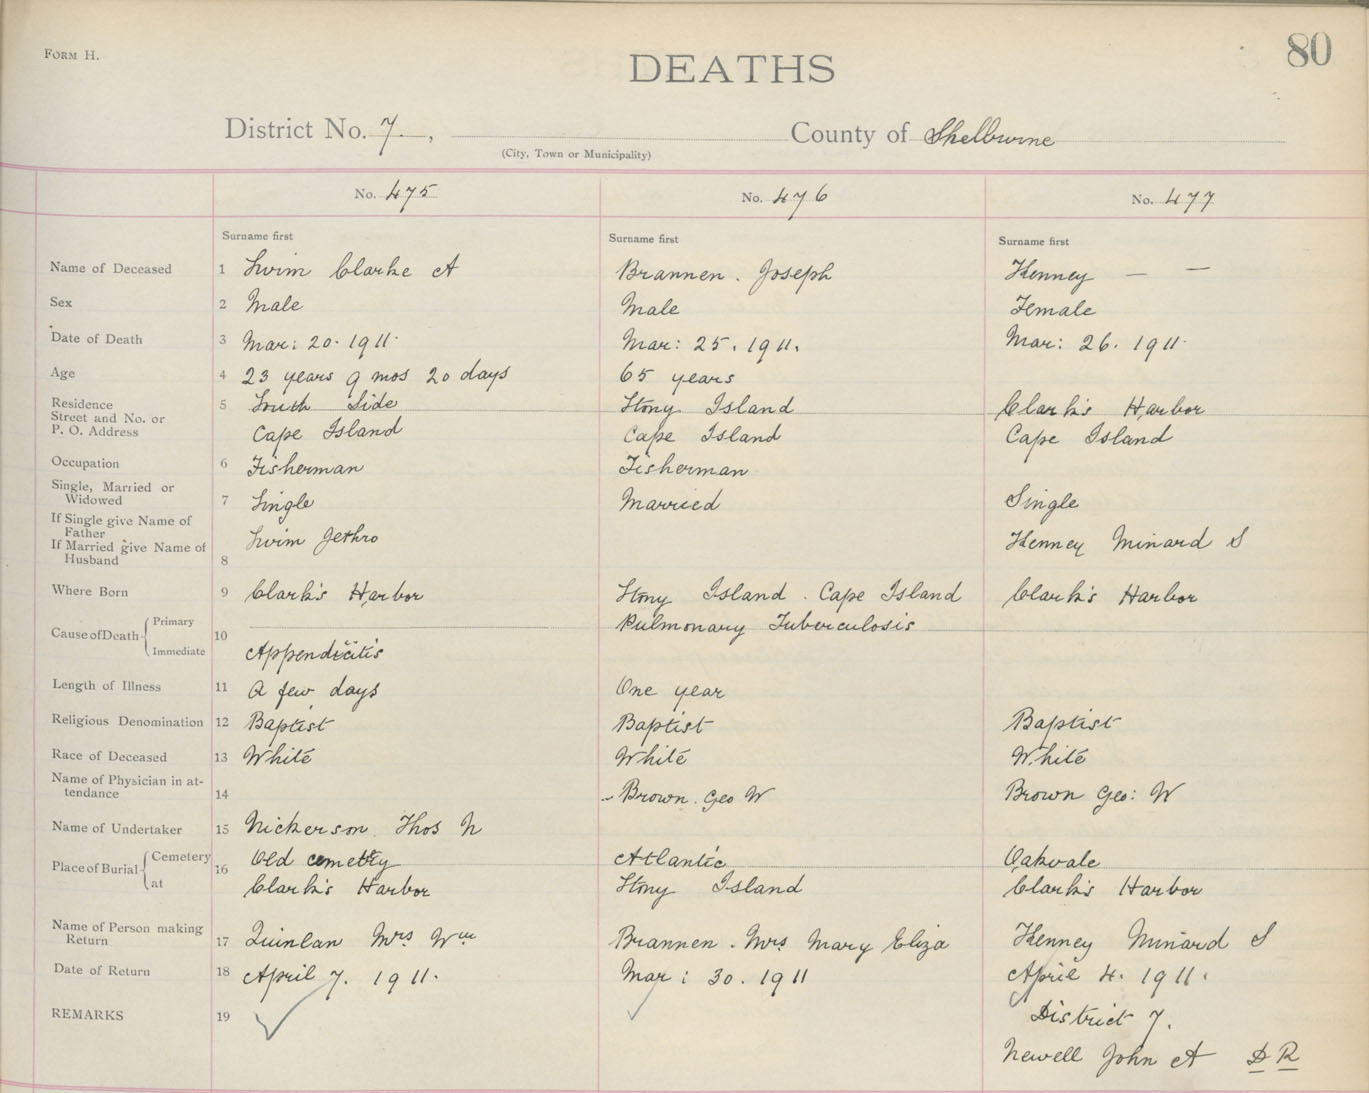 FORM H.
80
DEATHS
District No. 7, County of Shelburne
(City, Town or Municipality)
No. 475 No. 476 No. 477
Surname first Surname first Surname first
Name of Deceased 1 Swim Clarke A Brannen. Joseph Kenney — —
Sex 2 Male Male Female
Date of Death 3 Mar: 20. 1911. Mar: 25. 1911. Mar: 26. 1911.
Age 4 23 years 9 mos 20 days 65 years
Residence 5 South Side Stony Island Clark's Harbor
Street and No. or
P. O. Address Cape Island Cape Island Cape Island
Occupation 6 Fisherman Fisherman
Single, Married or
Widowed 7 Single Married Single
If Single give Name of
Father Swim Jethro Kenney Minard S
If Married give Name of
Husband 8
Where Born 9 Clark's Harbor Stony Island. Cape Island Clark's Harbor
Cause of Death Primary 10 Pulmonary Tuberculosis
Immediate Appendicitis
Length of Illness 11 A few days One year
Religious Denomination 12 Baptist Baptist Baptist
Race of Deceased 13 White White White
Name of Physician in at-
tendance 14 Brown. Geo W Brown Geo: W
Name of Undertaker 15 Nickerson Thos N
Place of Burial Cemetery 16 Old cemetry Atlantic Oakvale
at Clark's Harbor Stony Island Clark's Harbor
Name of Person making
Return 17 Quinlan Mrs Wm Brannen. Mrs Mary Eliza Kenney Minard S
Date of Return 18 April 7. 1911. Mar: 30. 1911 April 4. 1911.
REMARKS 19 District 7.
Newell John A D R